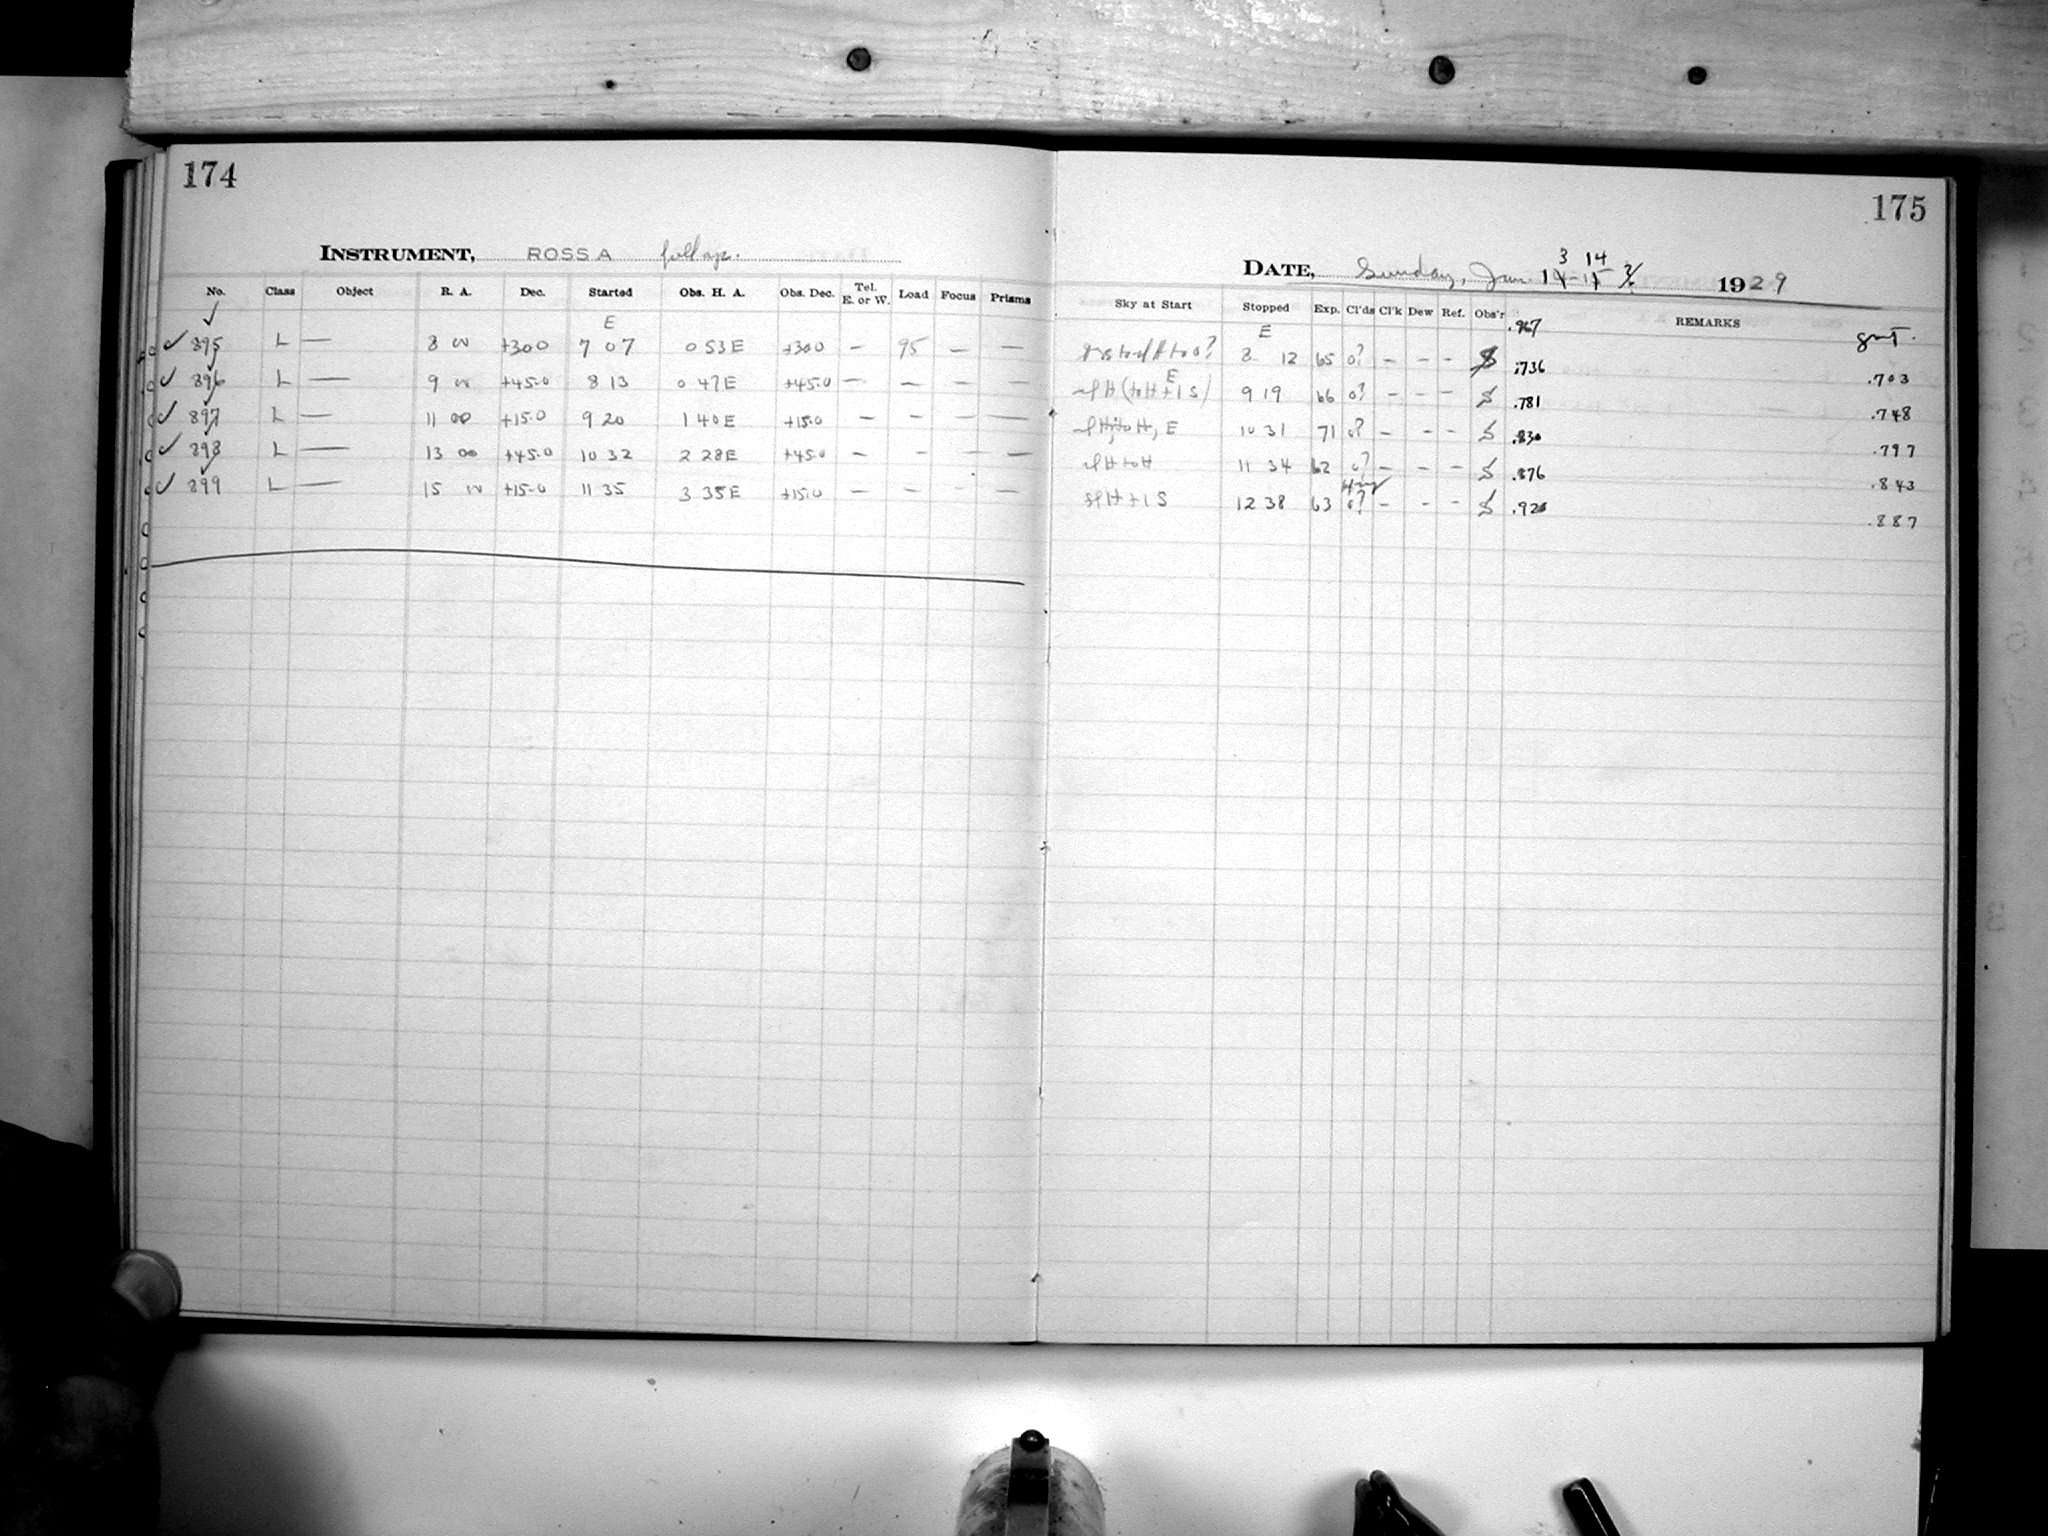 174
INSTRUMENT, ROSS A full ap.
No. Class Object R. A. Dec. Started Obs. H. A. Obs. Dec. Tel. E. or W. Load Focus Prisms
E
895 L — 8 00 +30.0 7 07 0 53 E +30.0 — 95 — —
896 L — 9 00 +45.0 8 13 0 47 E +45.0 — — — —
897 L — 11 00 +15.0 9 20 1 40 E +15.0 — — — —
898 L — 13 00 +45.0 10 32 2 28 E +45.0 — — — —
899 L — 15 00 +15.0 11 35 3 35 E +15.0 — — — —
175
3 14
DATE, Sunday, Jan. 14-15 1929
Sky at Start Stopped Exp. Cl'ds Cl'k Dew Ref. Obs'r REMARKS
E gmt.
8 12 65 0? — — — .703
9 19 66 0? — — — S .736 .748
10 31 71 0? — — — S .781 .797
11 34 62 0? — — — S .830 .843
.876
12 38 63 0? — — — S .920 .887